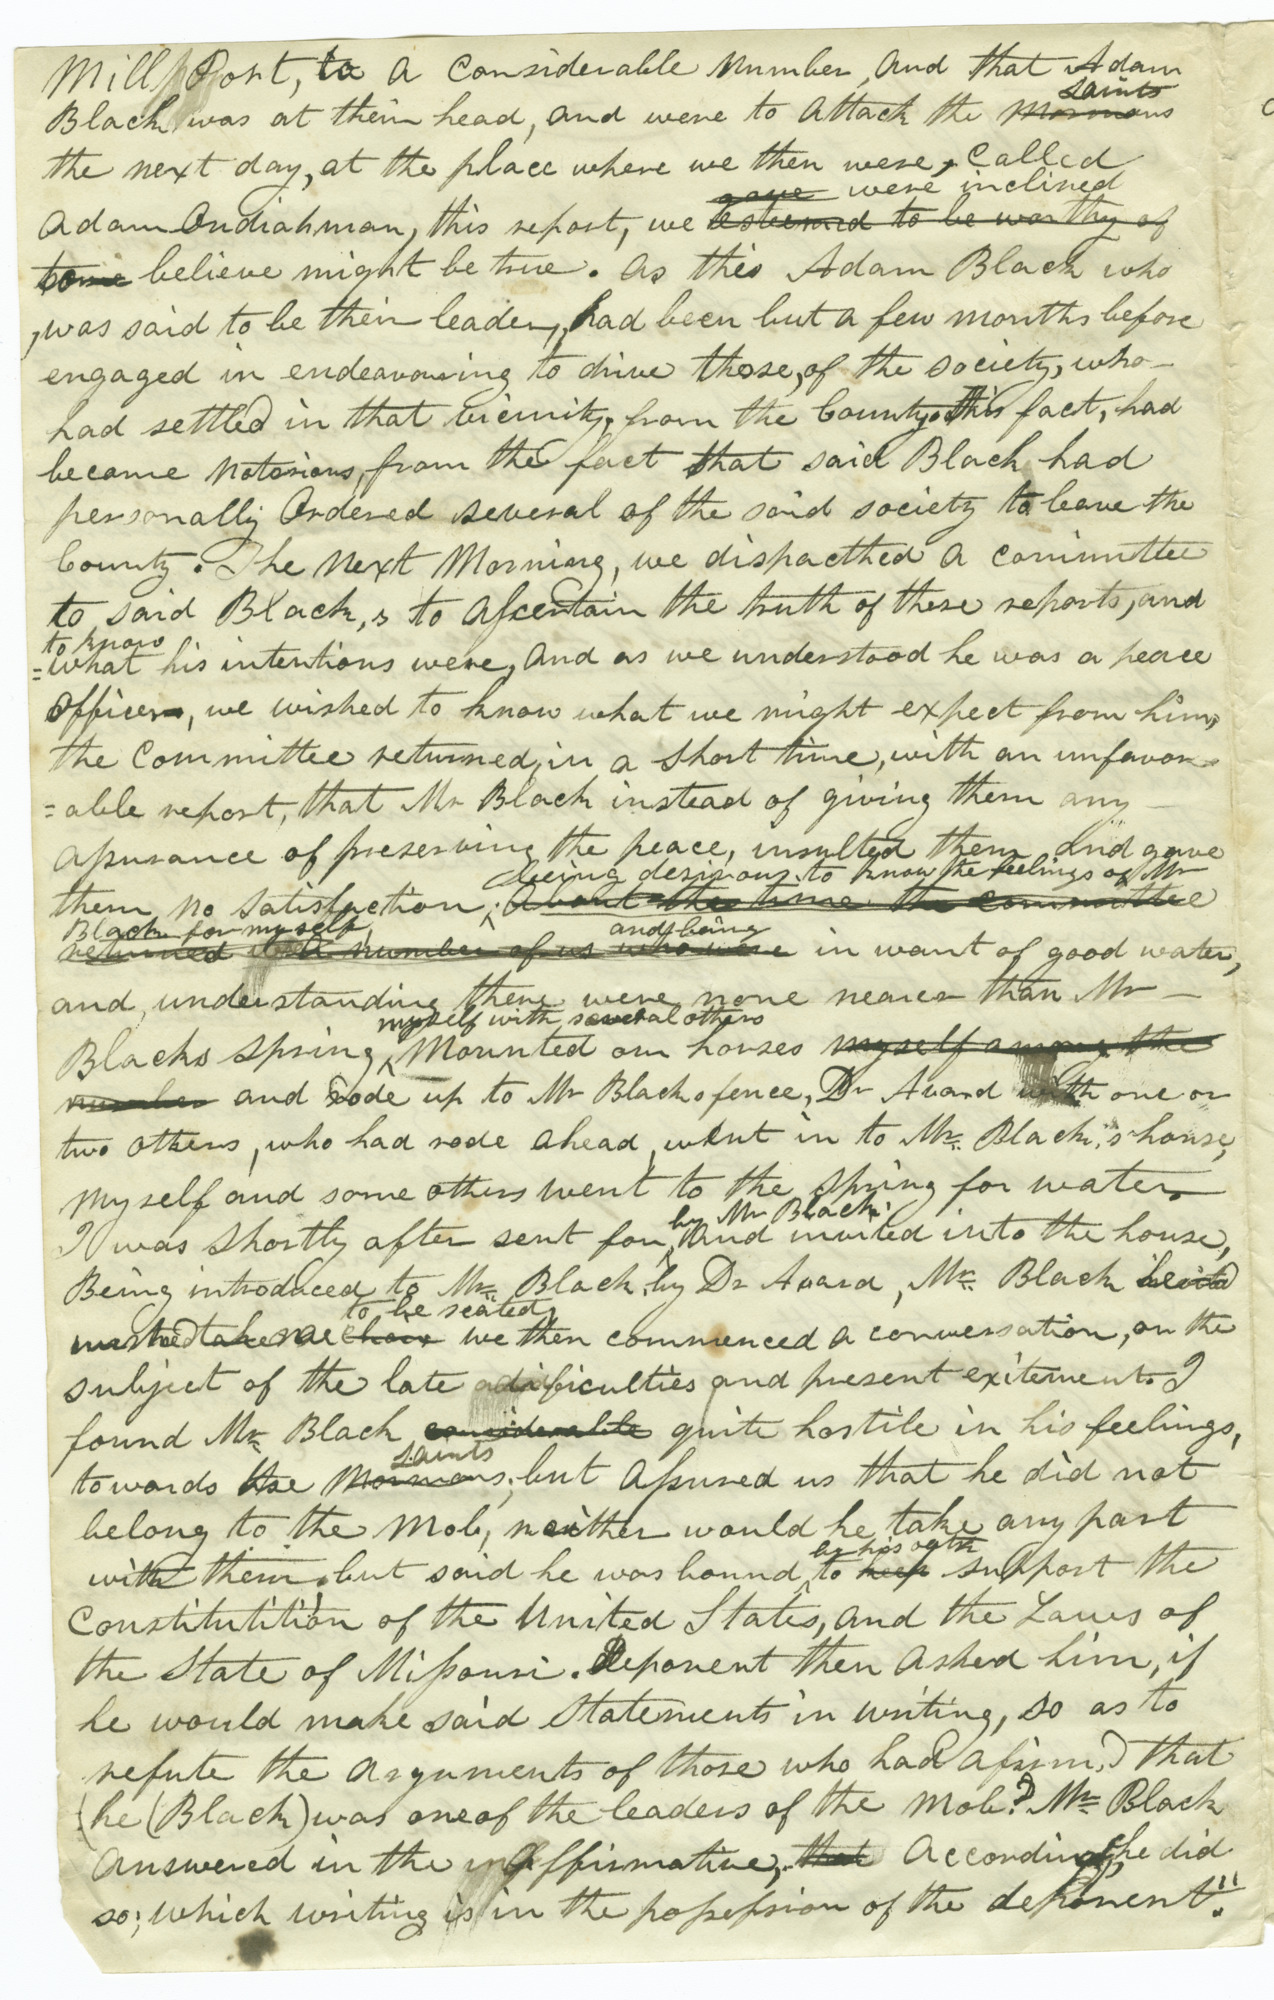 Mill Port, to a considerable number, and that Adam
saints
Black was at their head, and were to attack the Mormons
the next day, at the place where we then were, called
gave were inclined
Adam Ondiahman, this report, we esteemed to be worthy of
some believe might be true. as this Adam Black who
was said to be their leader, had been but a few months before
engaged in endeavouring to drive those, of the society, who
had settled in that vicinity, from the County. This fact, had
became notorious, from the fact that said Black had
personally ordered several of the said society to leave the
County. The next morning, we dispacthed a committee
to said Black, to ascertain the truth of these reports, and
to know
=what his intentions were, and as we understood he was a peace
officer, we wished to know what we might expect from him,
the committee returned, in a short time, with an unfavor
=able report, that Mr Black instead of giving them any
assurance of preserving the peace, insulted them and gave
being desirous to know the feelings of Mr
them no satisfaction, About this time the committee
Black for myself, and being
returned a number of us who were in want of good water,
and, understanding there were none nearer than Mr
myself with several others
Blacks spring, mounted our horses myself among the
number and rode up to Mr Blacks fence, Dr Avard with one or
two others, who had rode ahead, went in to Mr. Black's house,
myself and some others went to the spring for water.
by Mr Black.
I was shortly after sent for, and invited into the house,
Being introduced to Mr. Black, by Dr Avard, Mr. Black
to be seated,
wished take me chair we then commenced a conversation, on the
subject of the late dificulties and present exitement. I
found Mr. Black considerable quite hostile in his feelings,
saints
towards the Mormons; but assured us that he did not
belong to the mob, neither would he take any part
by his oath
with them, but said he was bound, to keep support the
Constitutition of the United States, and the Laws of
the State of Missouri. Deponent then asked him, if
he would make said statements in writing, so as to
refute the arguments of those who had afirm.d that
(he (Black) was one of the leaders of the mob? Mr. Black
answered in the affirmative, that Accordingly, he did
so; which writing is in the possession of the deponent."